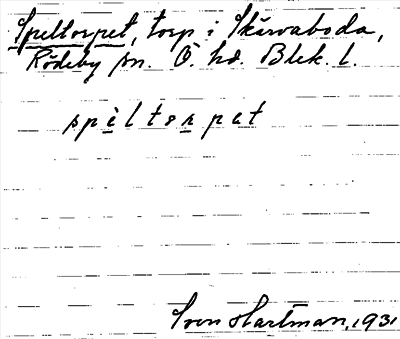 Speltorpet, torp i Skärvaboda,
Rödeby sn. Ö. hd. Blek. l.
spèltorpat
Sven Hartman, 1931